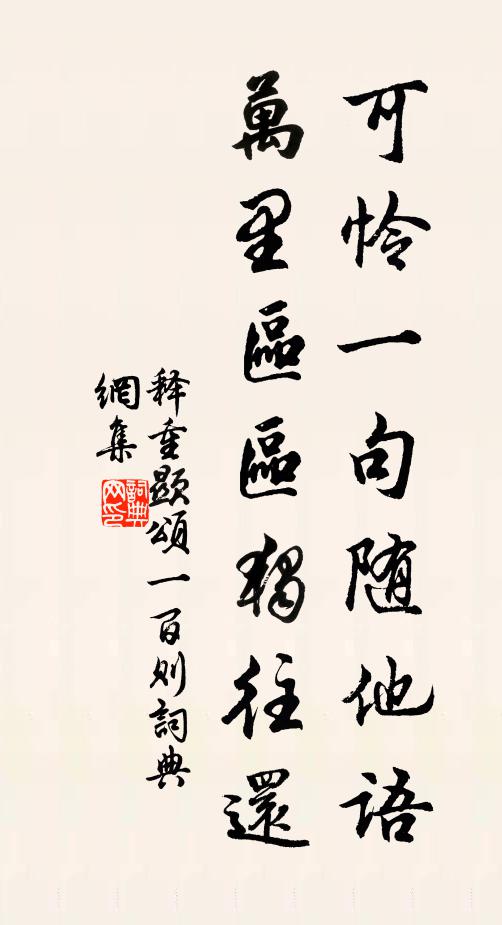 可怜一句随他语
萬里區區獨往還
释重顯頌一百则詞典
網集
詞典
网印